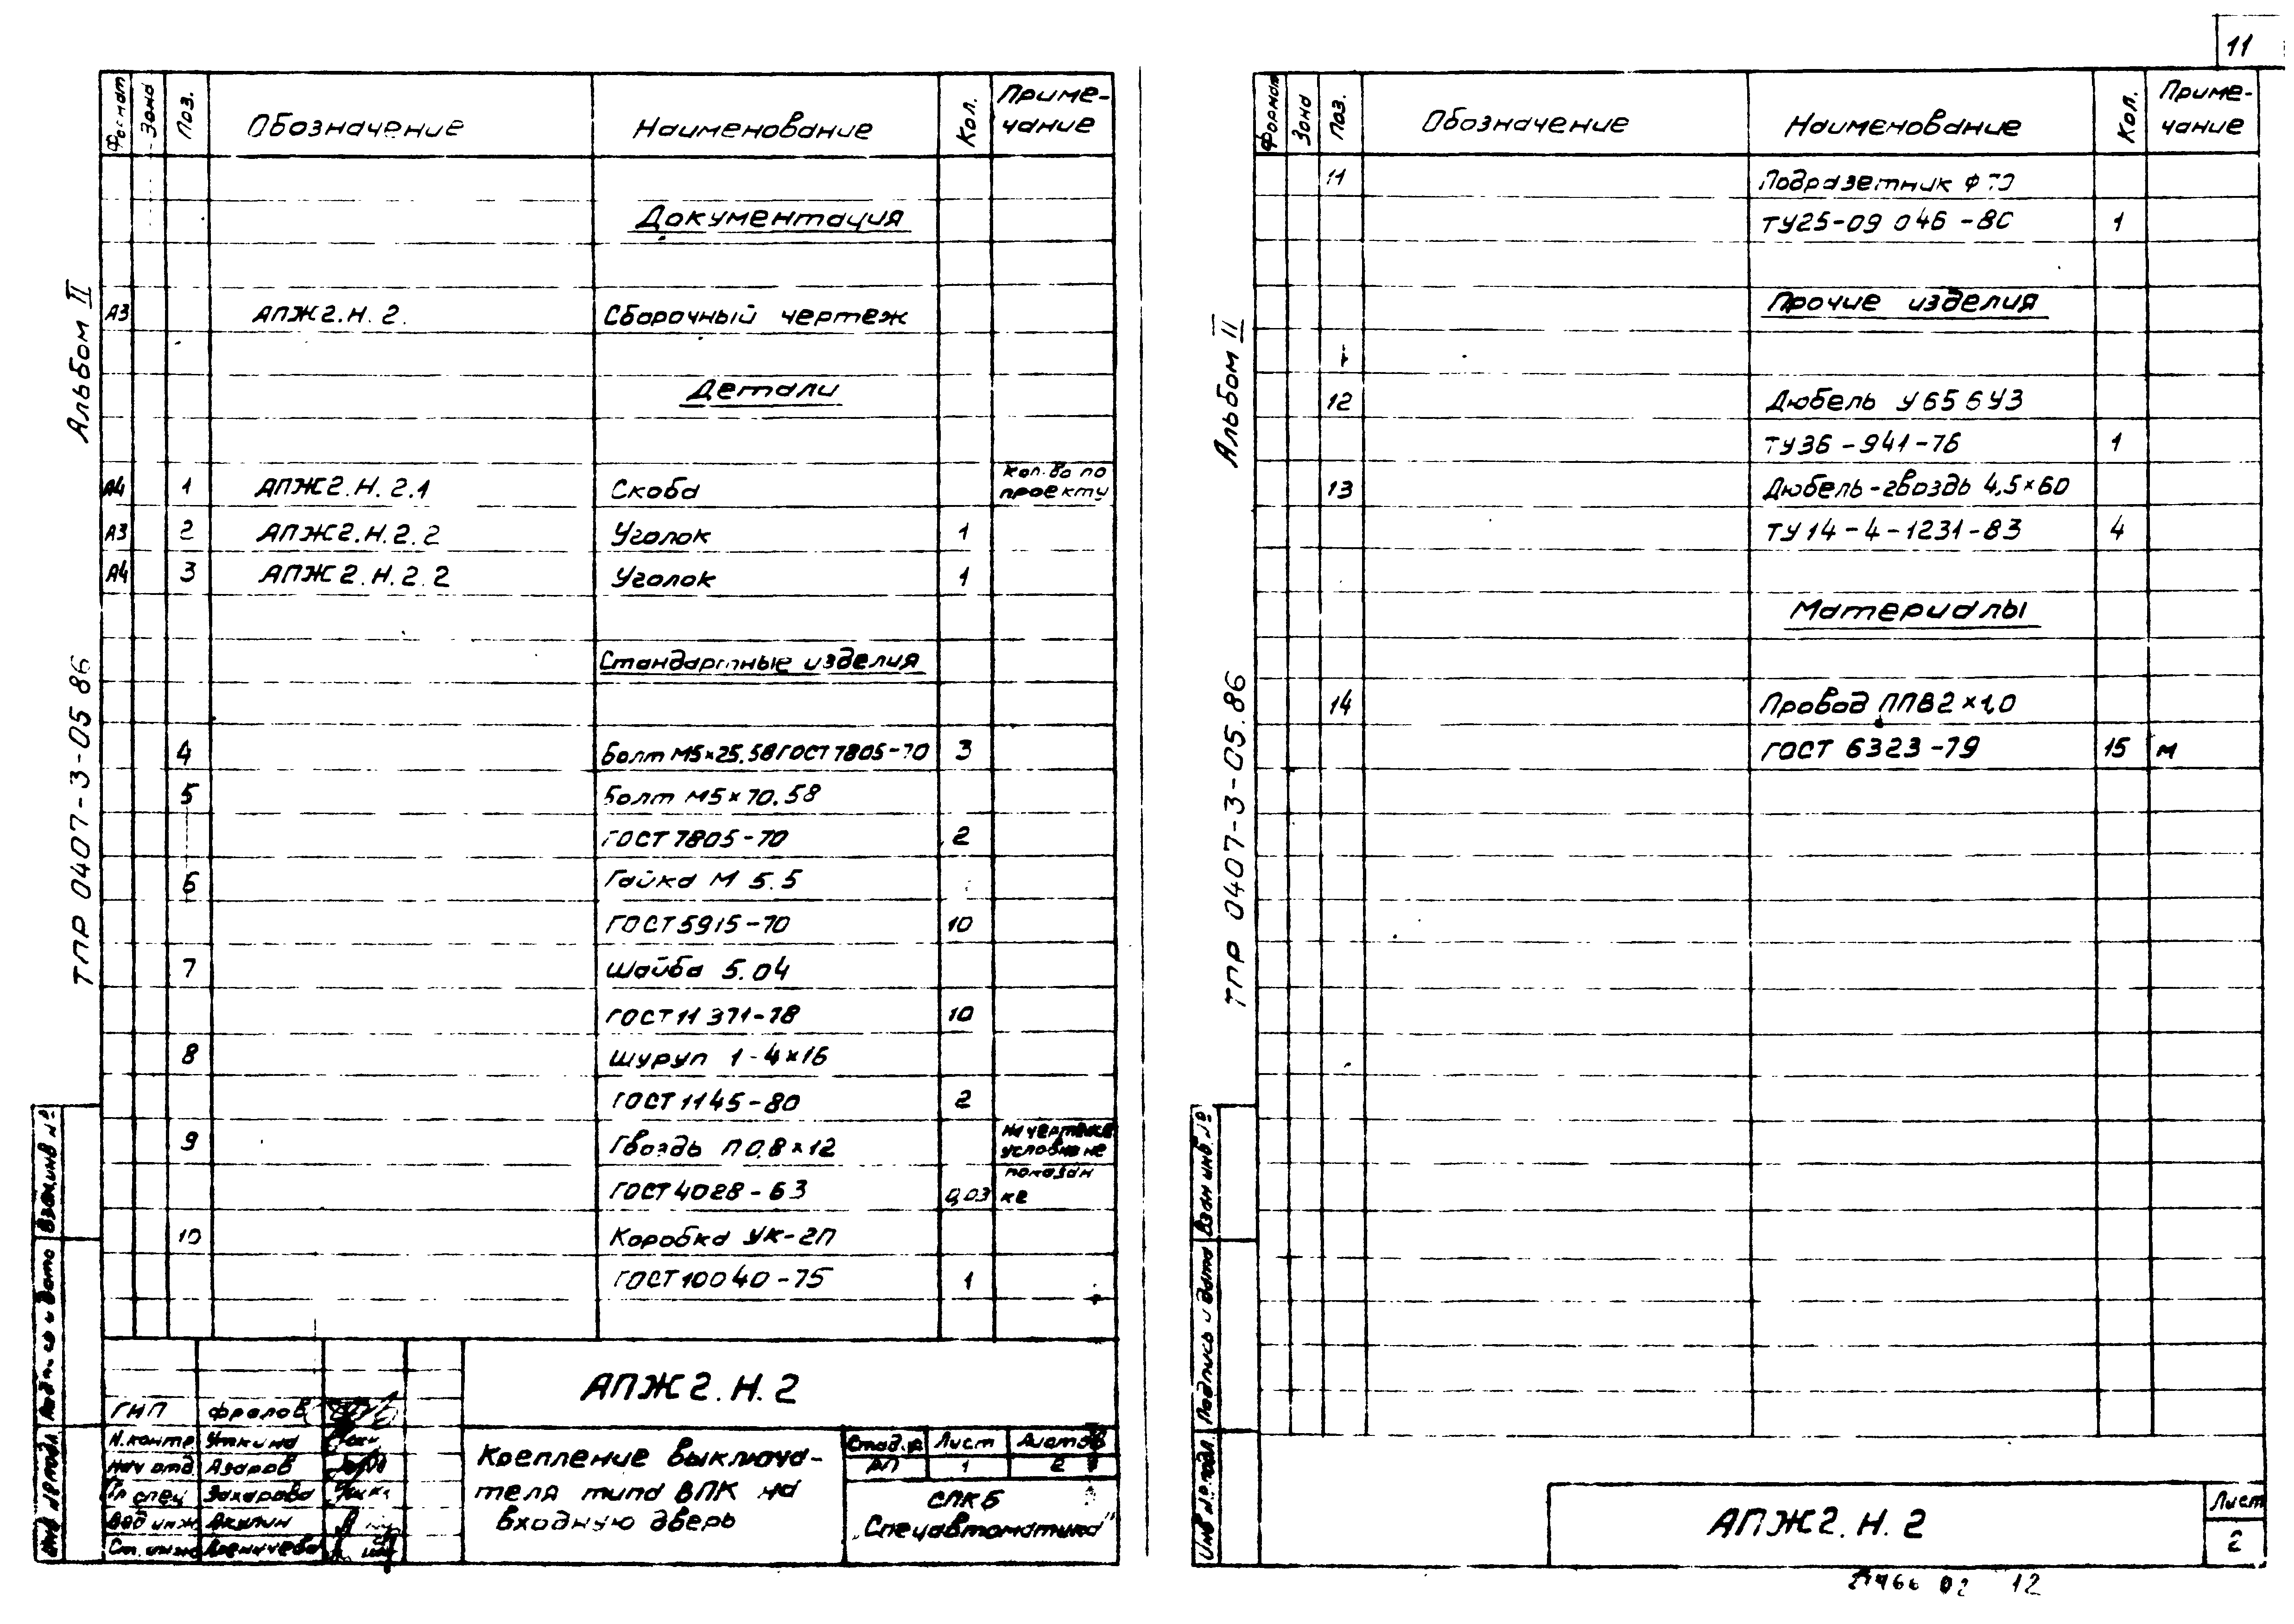 11
Альбом II
ТПР 0407-3-05 86
Формат Зона Поз. Обозначение Наименование Кол. Приме-
чание
Документация
А3 АПЖ2.Н.2. Сборочный чертеж
Детали
Кол-во по
А4 1 АПЖ2.Н.2.1 Скоба проекту
А3 2 АПЖ2.Н.2.2 Уголок 1
А4 3 АПЖ2.Н.2.2 Уголок 1
Стандартные изделия
4 Болт М5×25.58 ГОСТ 7805-70 3
5 Болт М5×70.58
ГОСТ 7805-70 2
6 Гайка М 5.5
ГОСТ 5915-70 10
7 Шайба 5.04
ГОСТ 11371-78 10
8 Шуруп 1-4×16
ГОСТ 1145-80 2
9 Гвоздь П 0,8×12 на чертеже
условно не
показан
ГОСТ 4028-63 0,03 кг
10 Коробка УК-2П
ГОСТ 10040-75 1
Взам.инв №
Подпись и дата
Инв № подл.
АПЖ2.Н.2
ГИП Фролов
Н.контр Уткина
Нач отд Азаров
Гл спец Захарова
Вед инж Акилин
Ст. инж
Крепление выключа-
теля типа ВПК на
входную дверь
Стадия Лист Листов
РП 1 2
СПКБ
„Спецавтоматика"
Альбом II
ТПР 0407-3-05.86
Формат Зона Поз. Обозначение Наименование Кол. Приме-
чание
11 Подрозетник
ТУ25-09 046-80 1
Прочие изделия
12 Дюбель У656У3
ТУ36-941-76 1
13 Дюбель-гвоздь 4,5×60
ТУ14-4-1231-83 4
Материалы
14 Провод ППВ2×1,0
ГОСТ 6323-79 15 м
Взам инв. №
Подпись и дата
Инв № подл.
АПЖ2.Н.2
Лист
2
02 12